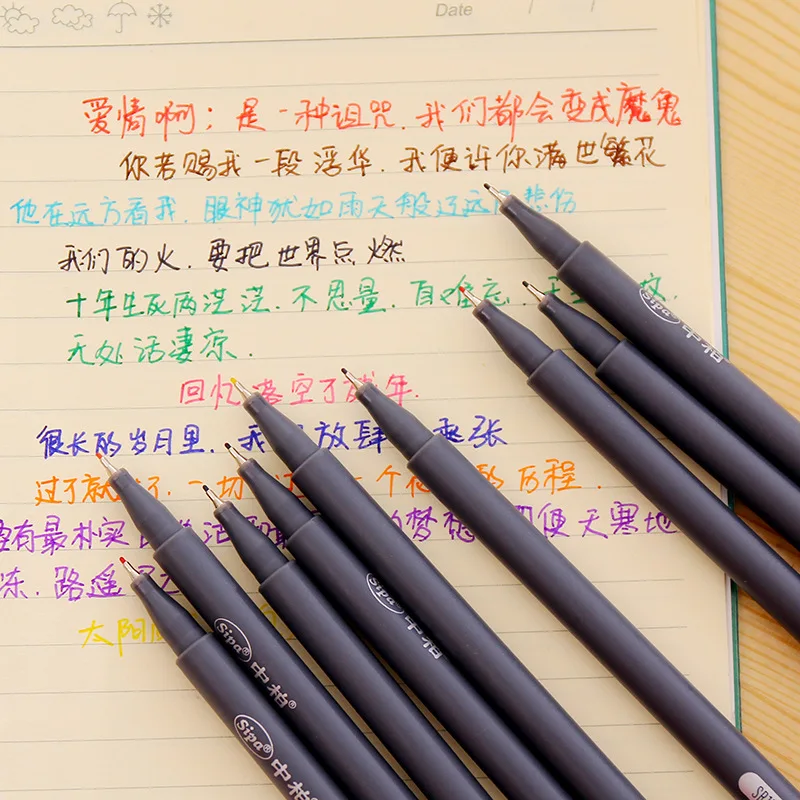 Date / /
爱情啊;是一种诅咒.我们都会变成魔鬼
你若赐我一段浮华.我便许你满世繁花
他在远方看我.眼神犹如雨天般辽远 悲伤
我们的火.要把世界点燃
十年生死两茫茫.不思量.自难忘.
无处话凄凉.
回忆落空了 年.
很长的岁月里.我 放肆 嚣张
过了就 了.一切 一个 的历程.
有最朴实 的梦想 即便天寒地
冻.路遥
太阳
Sipa® 中柏
Sipa® 中柏
Sipa® 中柏®
Sipa® 中柏